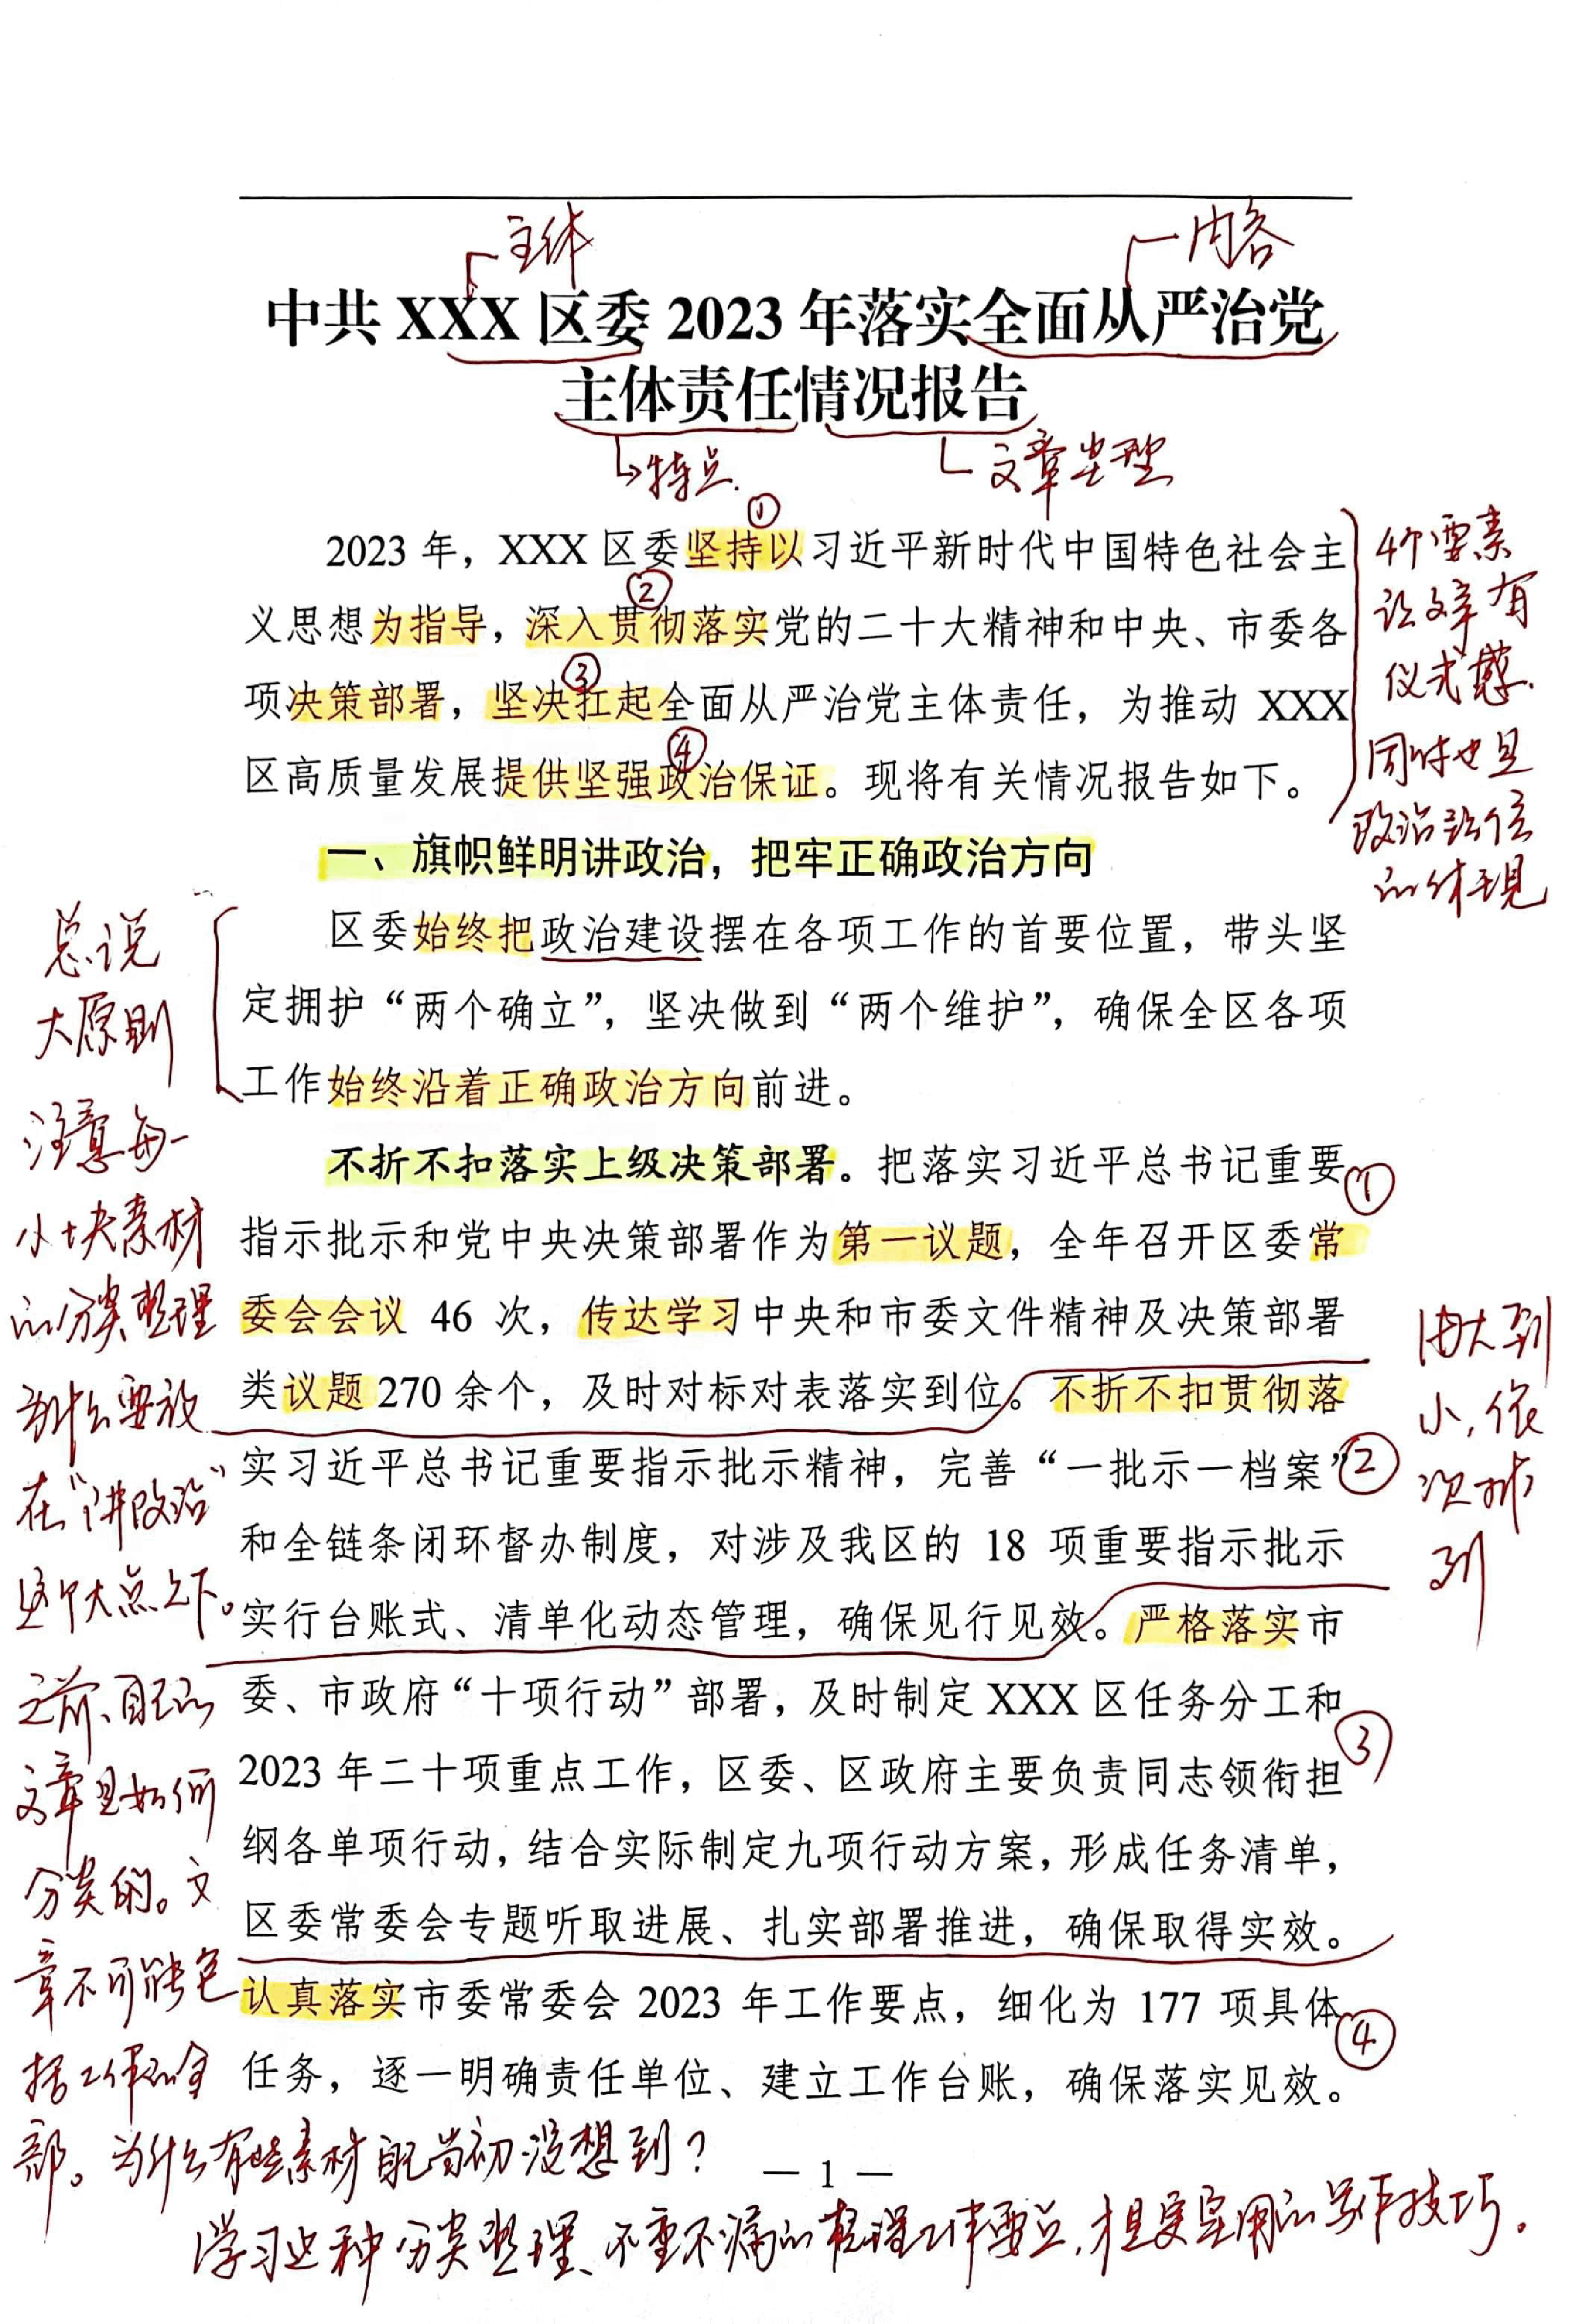 主体
内容
中共 XXX 区委 2023 年落实全面从严治党
主体责任情况报告
特点.
文章类型
①
2023 年，XXX 区委坚持以习近平新时代中国特色社会主
②
义思想为指导，深入贯彻落实党的二十大精神和中央、市委各
③
项决策部署，坚决扛起全面从严治党主体责任，为推动 XXX
④
区高质量发展提供坚强政治保证。现将有关情况报告如下。
4个要素
让文章有
仪式感.
同时也是
政治站位
的体现
一、旗帜鲜明讲政治，把牢正确政治方向
区委始终把政治建设摆在各项工作的首要位置，带头坚
定拥护“两个确立”，坚决做到“两个维护”，确保全区各项
工作始终沿着正确政治方向前进。
总说
大原则
不折不扣落实上级决策部署。把落实习近平总书记重要
①
指示批示和党中央决策部署作为第一议题，全年召开区委常
委会会议 46 次，传达学习中央和市委文件精神及决策部署
类议题 270 余个，及时对标对表落实到位。不折不扣贯彻落
实习近平总书记重要指示批示精神，完善“一批示一档案”
②
和全链条闭环督办制度，对涉及我区的 18 项重要指示批示
实行台账式、清单化动态管理，确保见行见效。严格落实市
委、市政府“十项行动”部署，及时制定 XXX 区任务分工和
③
2023 年二十项重点工作，区委、区政府主要负责同志领衔担
纲各单项行动，结合实际制定九项行动方案，形成任务清单，
区委常委会专题听取进展、扎实部署推进，确保取得实效。
认真落实市委常委会 2023 年工作要点，细化为 177 项具体
④
任务，逐一明确责任单位、建立工作台账，确保落实见效。
由大到
小，依
次排
列
注意每一
小块素材
的分类整理
为什么要放
在“讲政治”
这个大点之下。
之前、自己的
文章是如何
分类的。文
章不可能包
括工作的全
部。为什么有些素材自己当初没想到？
— 1 —
学习这种分类整理、不重不漏的梳理工作要点，才是更实用的写作技巧。